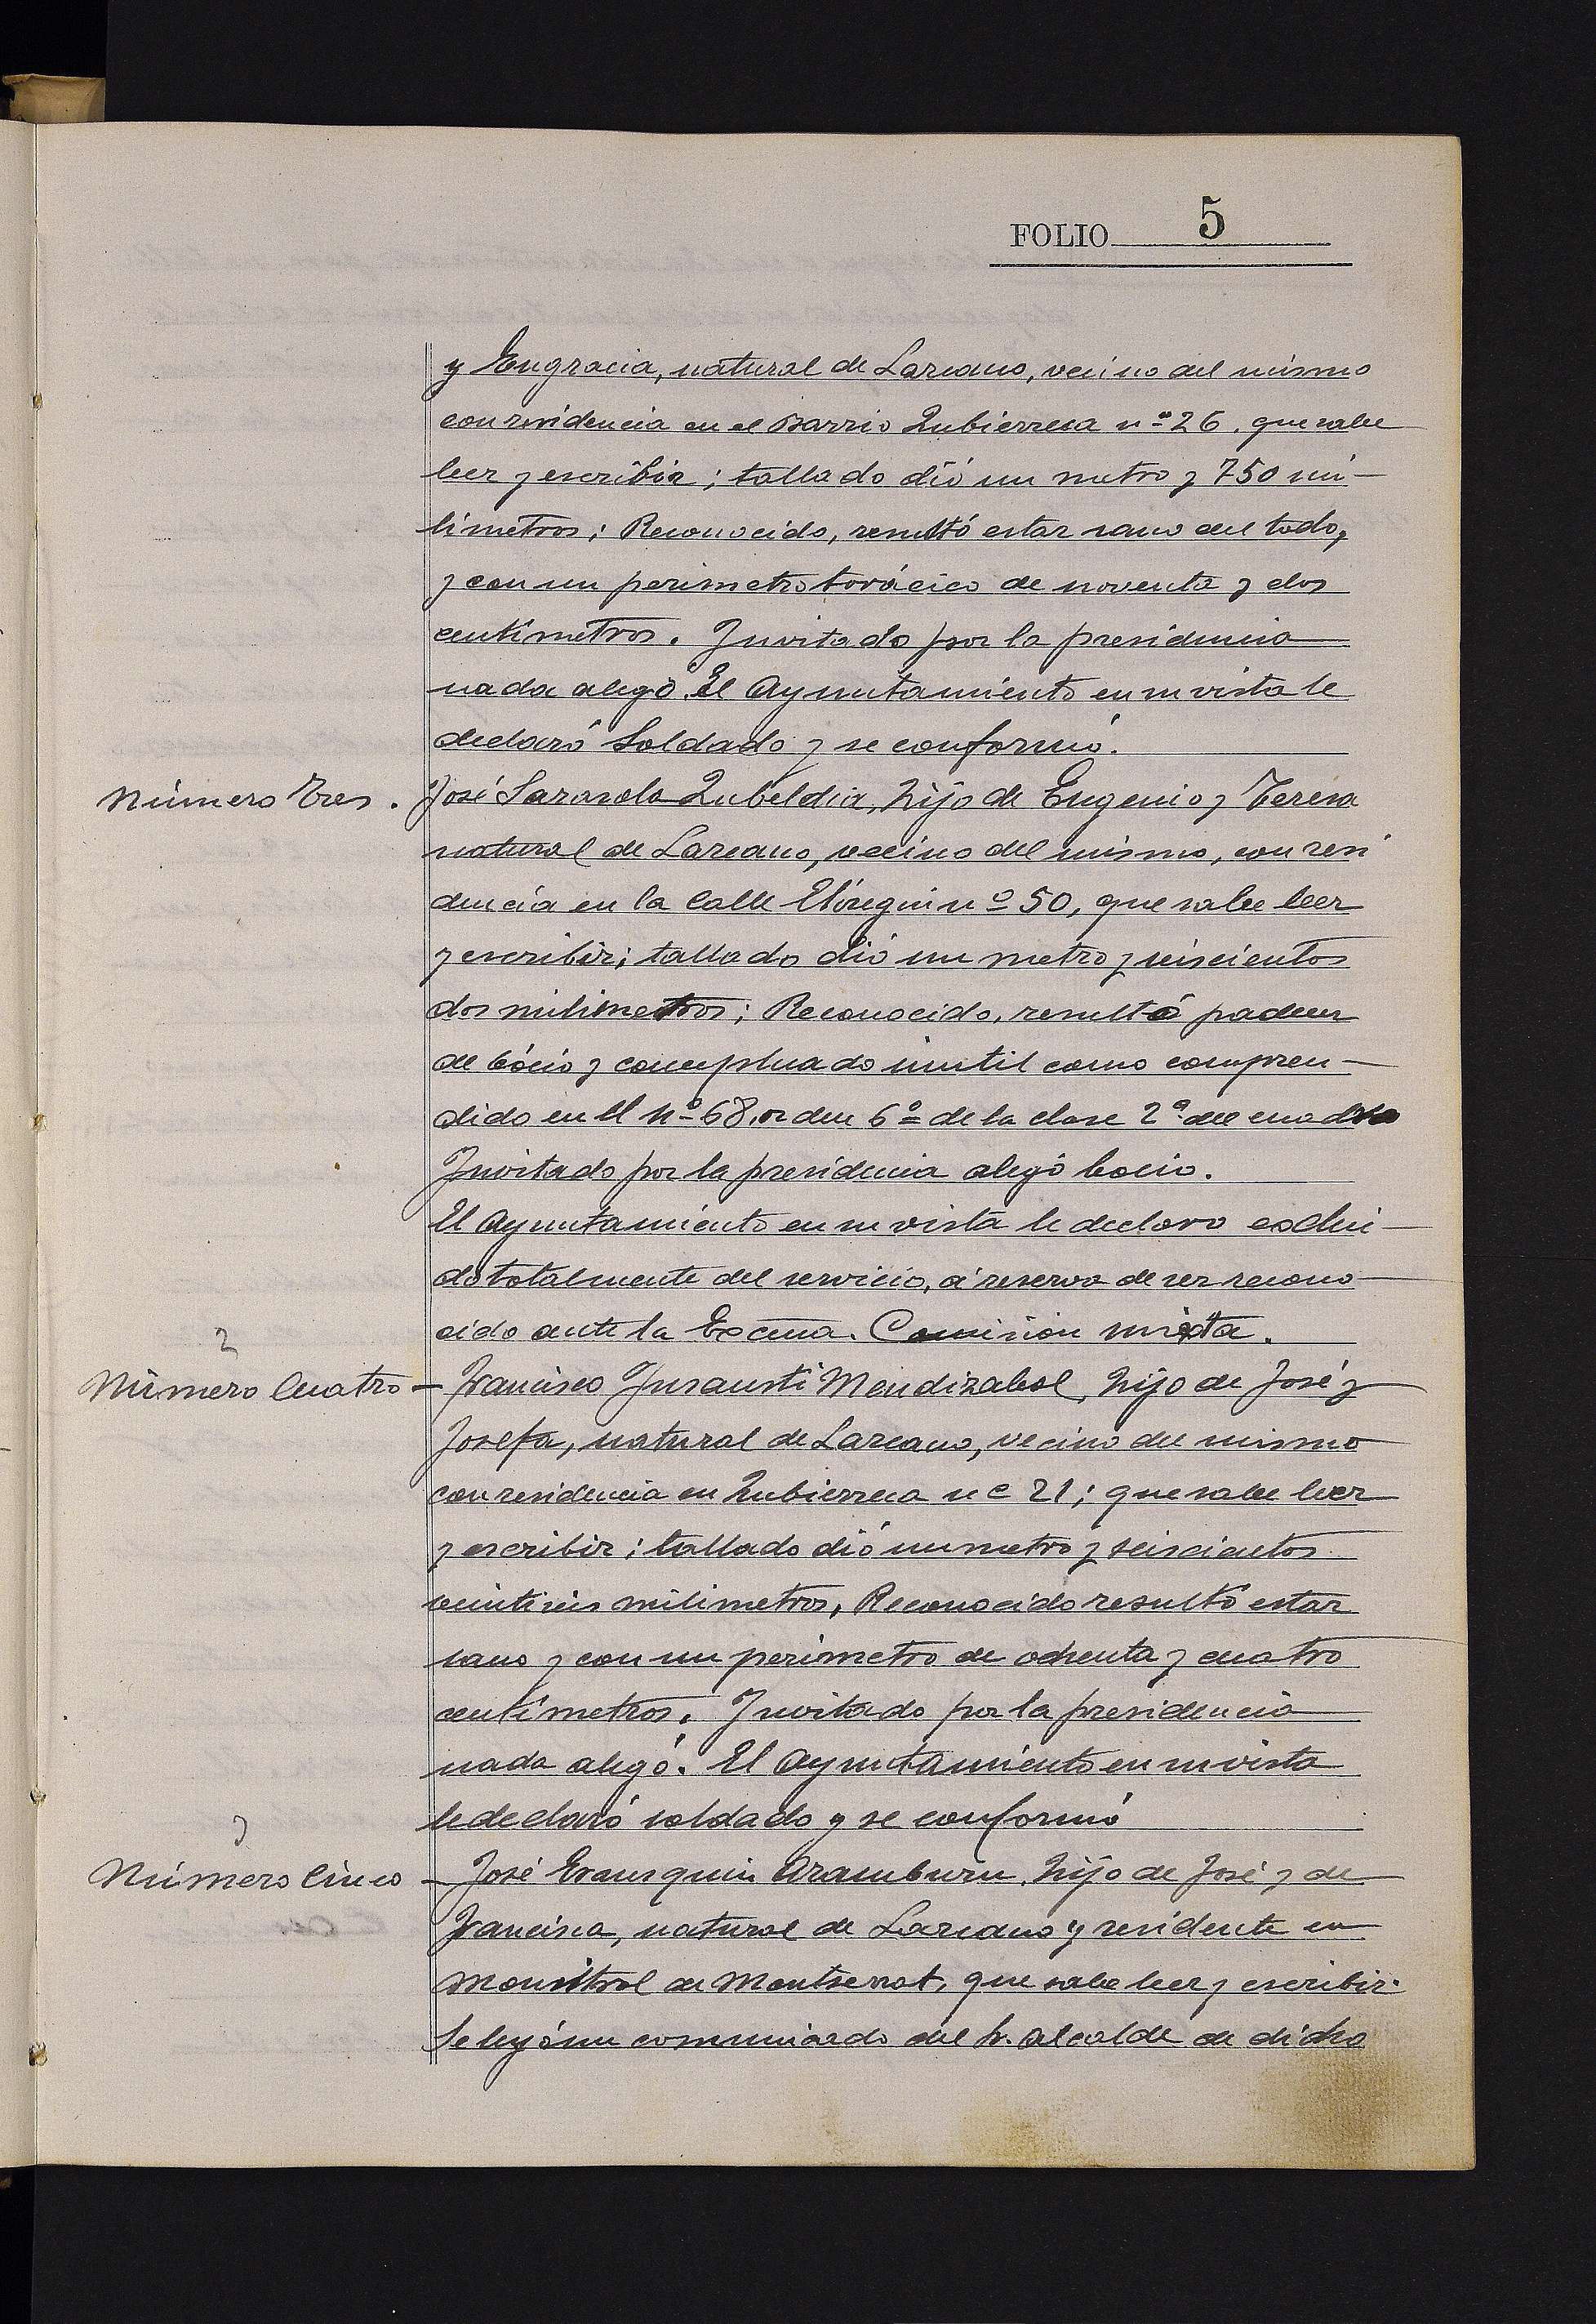 FOLIO 5
y Engracia, natural de Lazcano, vecino del mismo
con residencia en el Barrio Zubierreca nº 26. que sabe
leer y escribir; tallado dió un metro y 750 mi-
límetros; Reconocido, resultó estar sano del todo,
y con un perimetro torácico de noventa y dos
centímetros. Invitado por la presidencia
nada alegó. El Ayuntamiento en su vista le
declaró Soldado y se conformó.
Número Tres. José Sarasola Zubeldia, hijo de Eugenio y Teresa
natural de Lazcano, vecino del mismo, con resi
dencia en la Calle Elóregui nº 50, que sabe leer
y escribir; tallado dió un metro y seiscientos
dos milimetros; Reconocido, resultó padecer
de bócio y conceptuado inutil como compren-
dido en el nº 68, orden 6º de la clase 2ª del cuadro
Invitado por la presidencia alegó bocio.
El Ayuntamiento en su vista le declaro esclui-
do totalmente del servicio, á reserva de ser recono-
cido ante la Excma. Comisión mixta.
2
Número Cuatro - Francisco Insausti Mendizabal, hijo de José y
Josefa, natural de Lazcano, vecino del mismo
con residencia en Zubierreca nº 21; que sabe leer
y escribir; tallado dió un metro y seiscientos
veintiseis milimetros, Reconocido resultó estar
sano y con un perimetro de ochenta y cuatro
centímetros. Invitado por la presidencia
nada alegó. El Ayuntamiento en su vista
le declaró soldado y se conformó
3
Número Cinco - José Erausquin Aramburu, hijo de José y de
Francisca, natural de Lazcano y residente en
Monistrol de Montserrat, que sabe leer y escribir.
Se leyó un comunicado del Sr. Alcalde de dicha